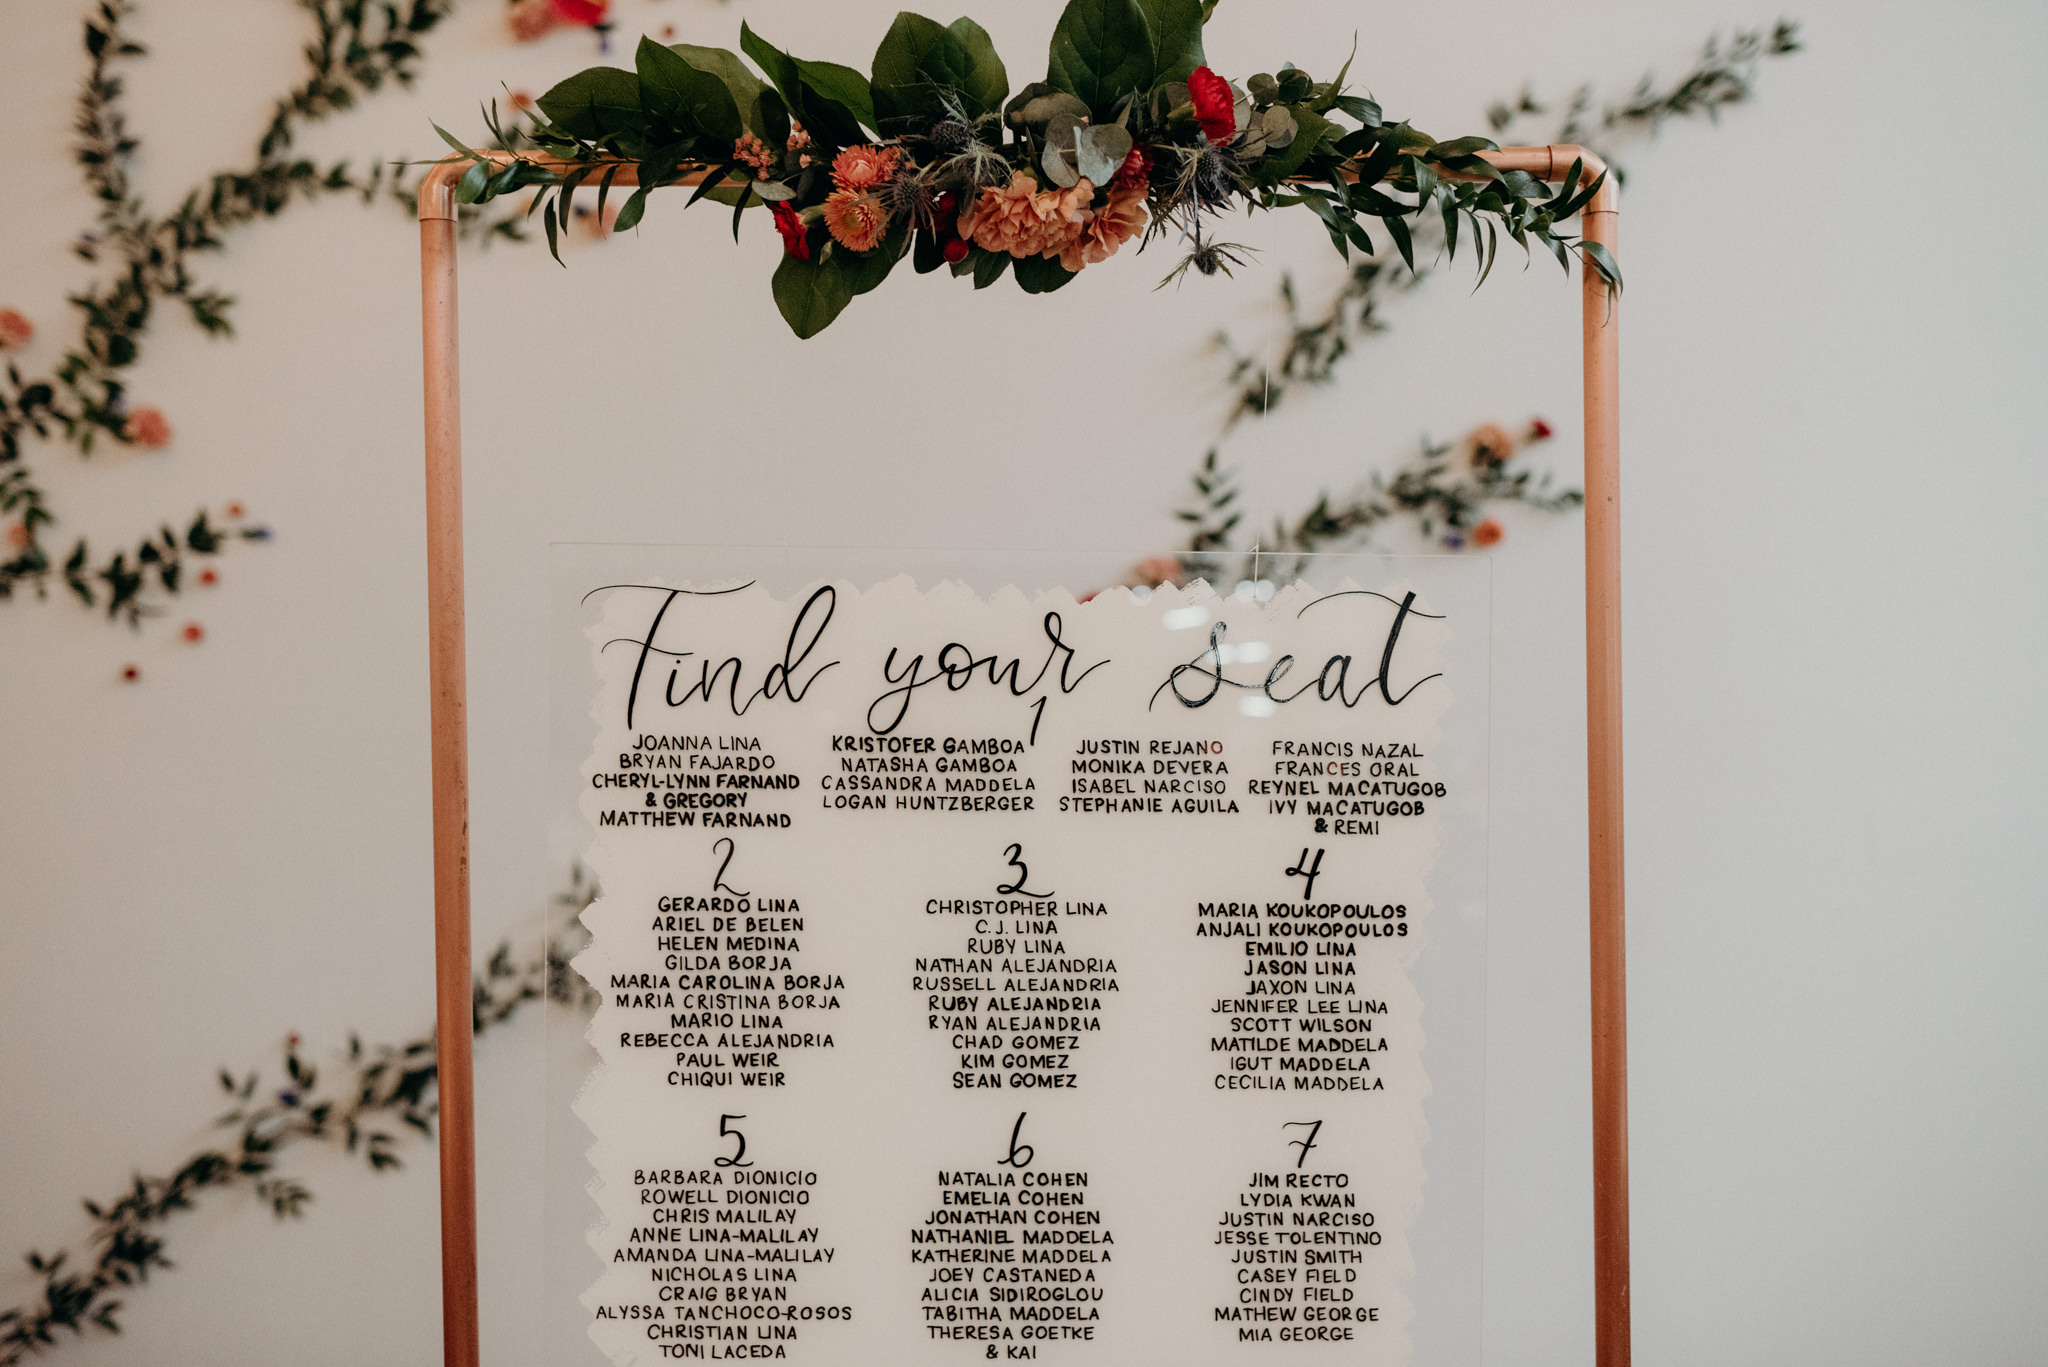 Find your seat
1
JOANNA LINA
BRYAN FAJARDO
CHERYL-LYNN FARNAND
& GREGORY
MATTHEW FARNAND
KRISTOFER GAMBOA
NATASHA GAMBOA
CASSANDRA MADDELA
LOGAN HUNTZBERGER
JUSTIN REJANO
MONIKA DEVERA
ISABEL NARCISO
STEPHANIE AGUILA
FRANCIS NAZAL
FRANCES ORAL
REYNEL MACATUGOB
IVY MACATUGOB
& REMI
2
GERARDO LINA
ARIEL DE BELEN
HELEN MEDINA
GILDA BORJA
MARIA CAROLINA BORJA
MARIA CRISTINA BORJA
MARIO LINA
REBECCA ALEJANDRIA
PAUL WEIR
CHIQUI WEIR
3
CHRISTOPHER LINA
C.J. LINA
RUBY LINA
NATHAN ALEJANDRIA
RUSSELL ALEJANDRIA
RUBY ALEJANDRIA
RYAN ALEJANDRIA
CHAD GOMEZ
KIM GOMEZ
SEAN GOMEZ
4
MARIA KOUKOPOULOS
ANJALI KOUKOPOULOS
EMILIO LINA
JASON LINA
JAXON LINA
JENNIFER LEE LINA
SCOTT WILSON
MATILDE MADDELA
IGUT MADDELA
CECILIA MADDELA
5
BARBARA DIONICIO
ROWELL DIONICIO
CHRIS MALILAY
ANNE LINA-MALILAY
AMANDA LINA-MALILAY
NICHOLAS LINA
CRAIG BRYAN
ALYSSA TANCHOCO-ROSOS
CHRISTIAN LINA
TONI LACEDA
6
NATALIA COHEN
EMELIA COHEN
JONATHAN COHEN
NATHANIEL MADDELA
KATHERINE MADDELA
JOEY CASTANEDA
ALICIA SIDIROGLOU
TABITHA MADDELA
THERESA GOETKE
& KAI
7
JIM RECTO
LYDIA KWAN
JUSTIN NARCISO
JESSE TOLENTINO
JUSTIN SMITH
CASEY FIELD
CINDY FIELD
MATHEW GEORGE
MIA GEORGE